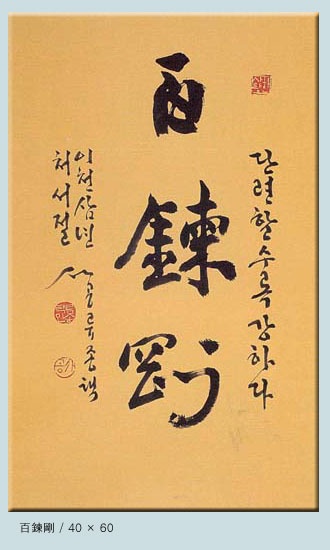 단련할수록 강하다
百鍊剛
이천삼년
처서절
류종택
百鍊剛 / 40 × 60